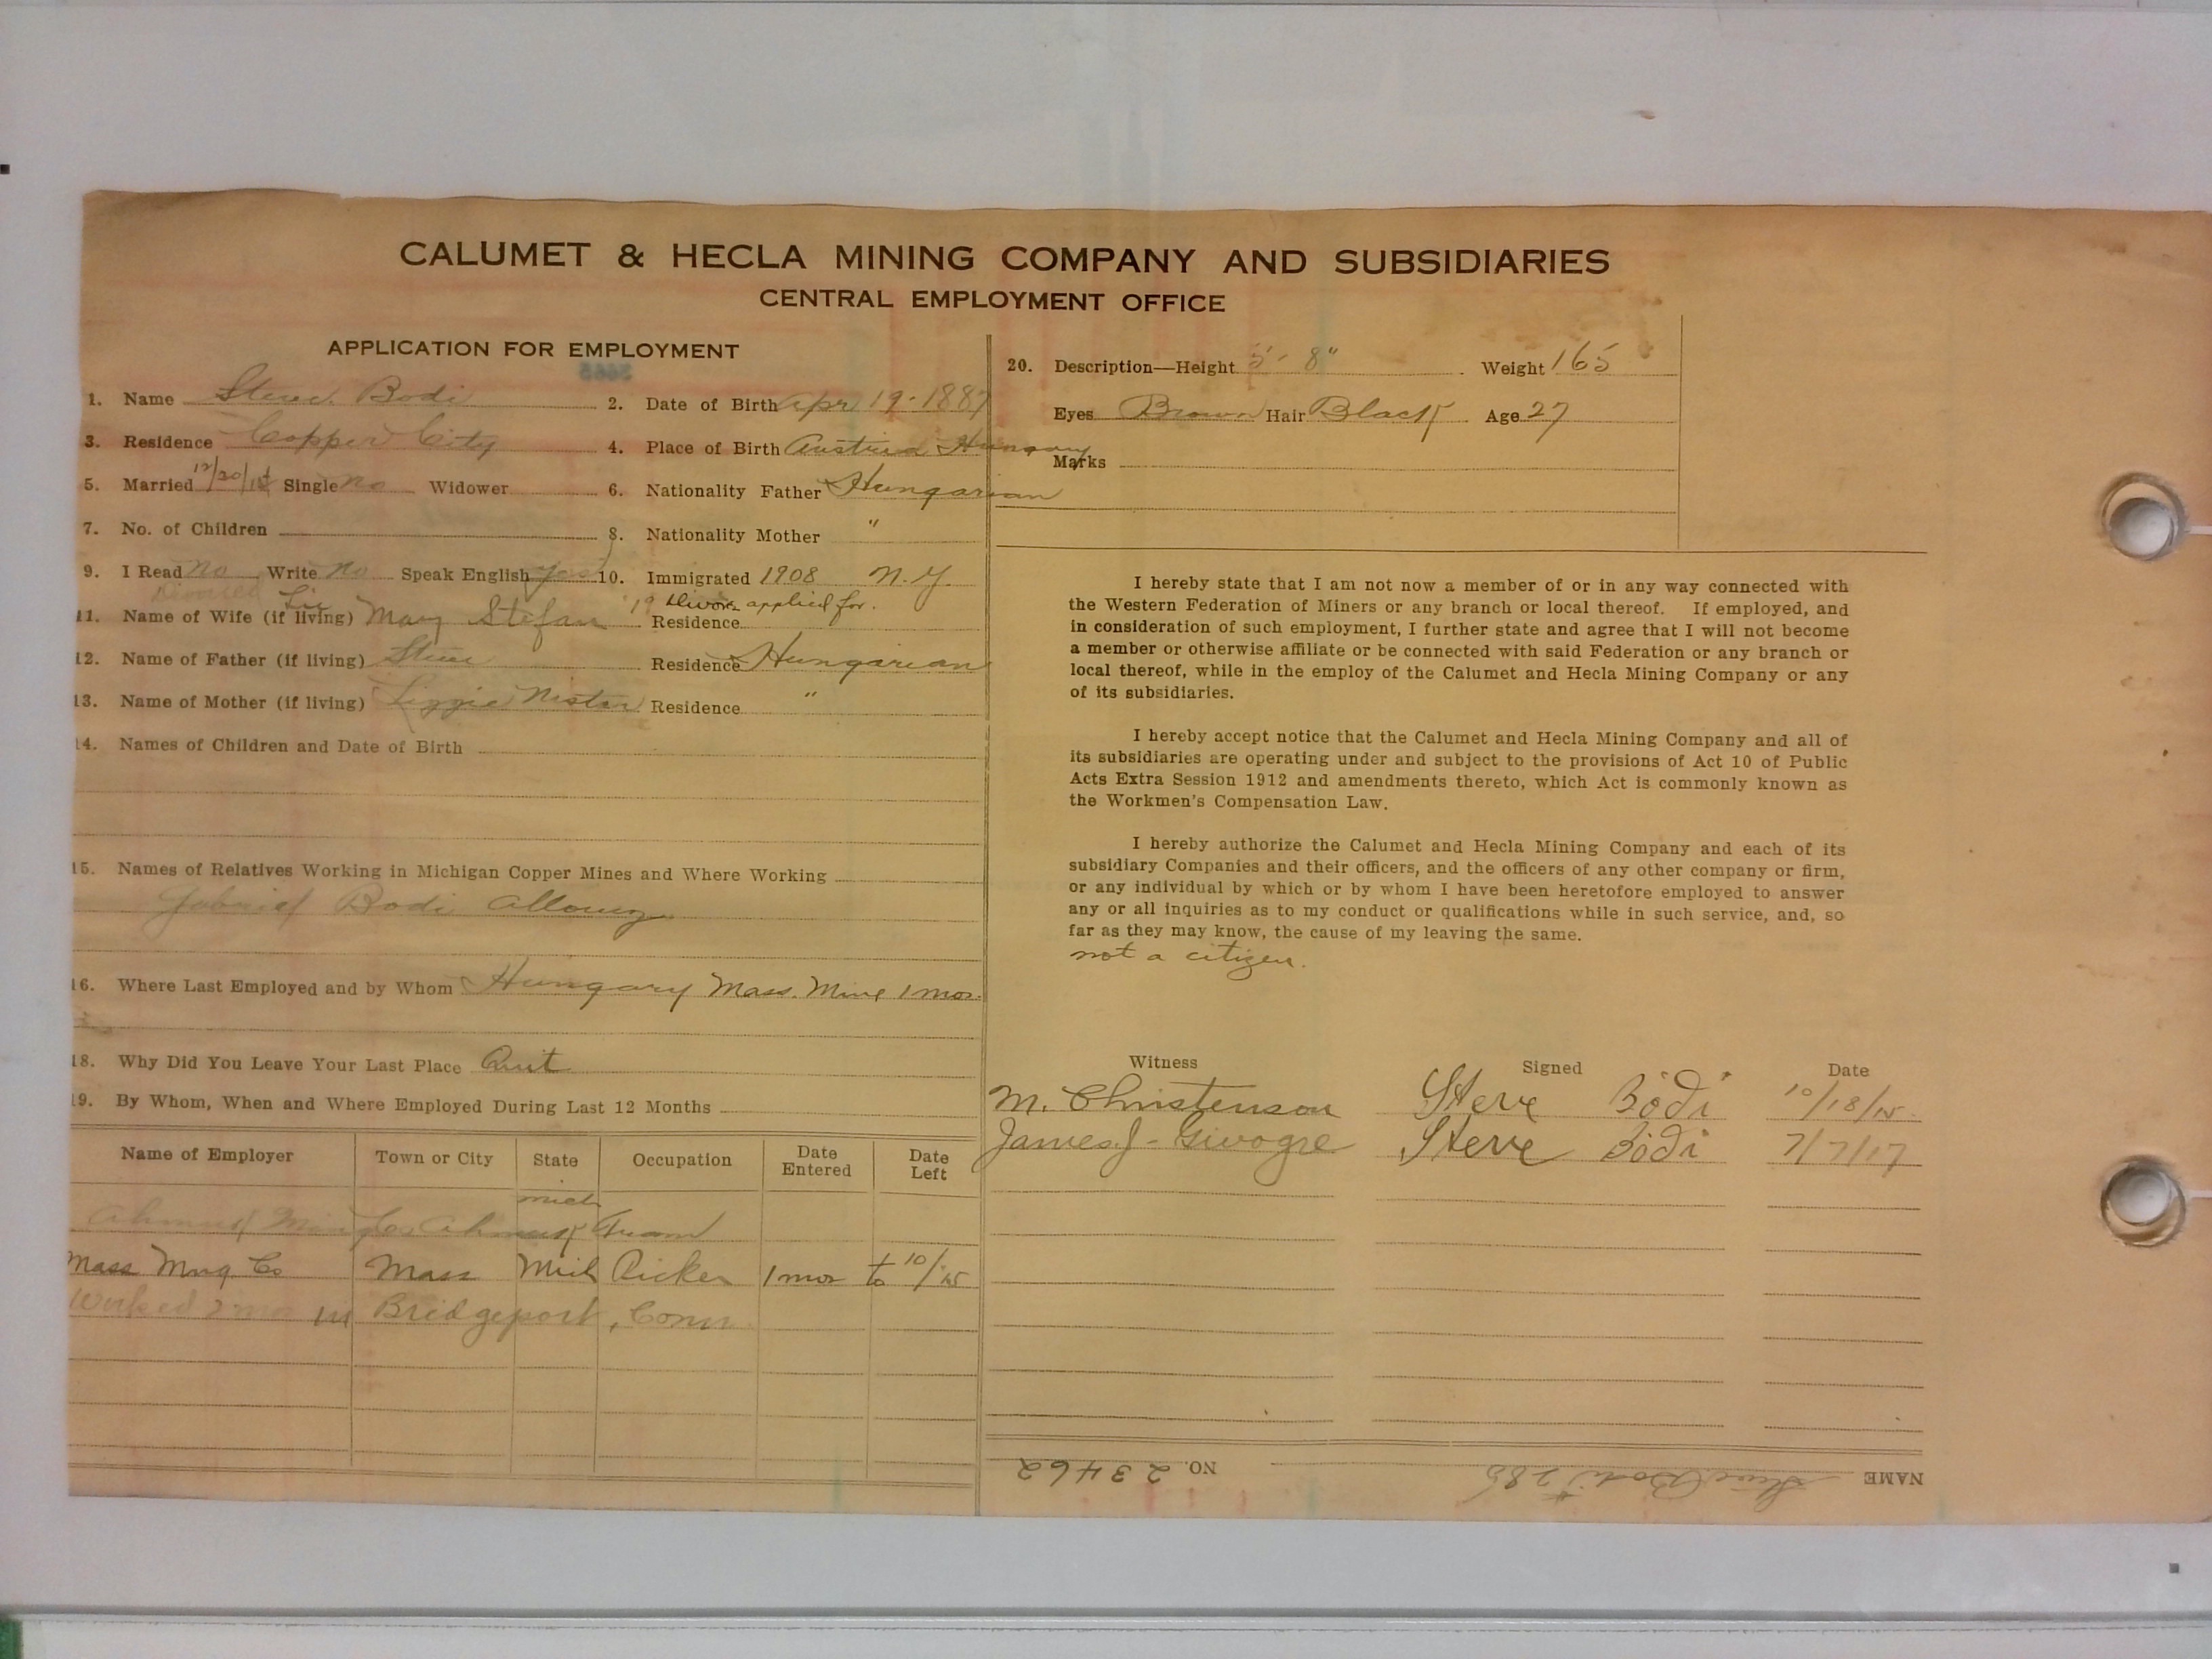 CALUMET & HECLA MINING COMPANY AND SUBSIDIARIES
CENTRAL EMPLOYMENT OFFICE
APPLICATION FOR EMPLOYMENT
1. Name Steve Bodi 2. Date of Birth Apr 19-1887
3. Residence Copper City 4. Place of Birth Austria Hungary
5. Married 12/20/ Single No Widower 6. Nationality Father Hungarian
7. No. of Children 8. Nationality Mother "
9. I Read No Write No Speak English Yes 10. Immigrated 1908 N.Y.
Divorced applied for.
11. Name of Wife (if living) Mary Stefan Residence
12. Name of Father (if living) Steve Residence Hungarian
13. Name of Mother (if living) Lizzie Residence "
14. Names of Children and Date of Birth
15. Names of Relatives Working in Michigan Copper Mines and Where Working
Gabriel Bodi Allouez
16. Where Last Employed and by Whom Hungary Mass. Mine 1 mos.
18. Why Did You Leave Your Last Place Quit
19. By Whom, When and Where Employed During Last 12 Months
Name of Employer Town or City State Occupation Date Entered Date Left
Mich
Ahmeek Ming Co Ahmeek Tram
Mass Mng Co Mass Mich Picker 1 mos to 10/15
Worked 2 mos in Bridgeport, Conn
20. Description—Height 5' 8" Weight 165
Eyes Brown Hair Black Age 27
Marks
I hereby state that I am not now a member of or in any way connected with
the Western Federation of Miners or any branch or local thereof. If employed, and
in consideration of such employment, I further state and agree that I will not become
a member or otherwise affiliate or be connected with said Federation or any branch or
local thereof, while in the employ of the Calumet and Hecla Mining Company or any
of its subsidiaries.
I hereby accept notice that the Calumet and Hecla Mining Company and all of
its subsidiaries are operating under and subject to the provisions of Act 10 of Public
Acts Extra Session 1912 and amendments thereto, which Act is commonly known as
the Workmen's Compensation Law.
I hereby authorize the Calumet and Hecla Mining Company and each of its
subsidiary Companies and their officers, and the officers of any other company or firm,
or any individual by which or by whom I have been heretofore employed to answer
any or all inquiries as to my conduct or qualifications while in such service, and, so
far as they may know, the cause of my leaving the same.
not a citizen.
Witness Signed Date
M. Christenson Steve Bodi 10/18/15
James J. Givogre Steve Bodi 7/7/17
NAME Steve Bodi #285 NO. 23462